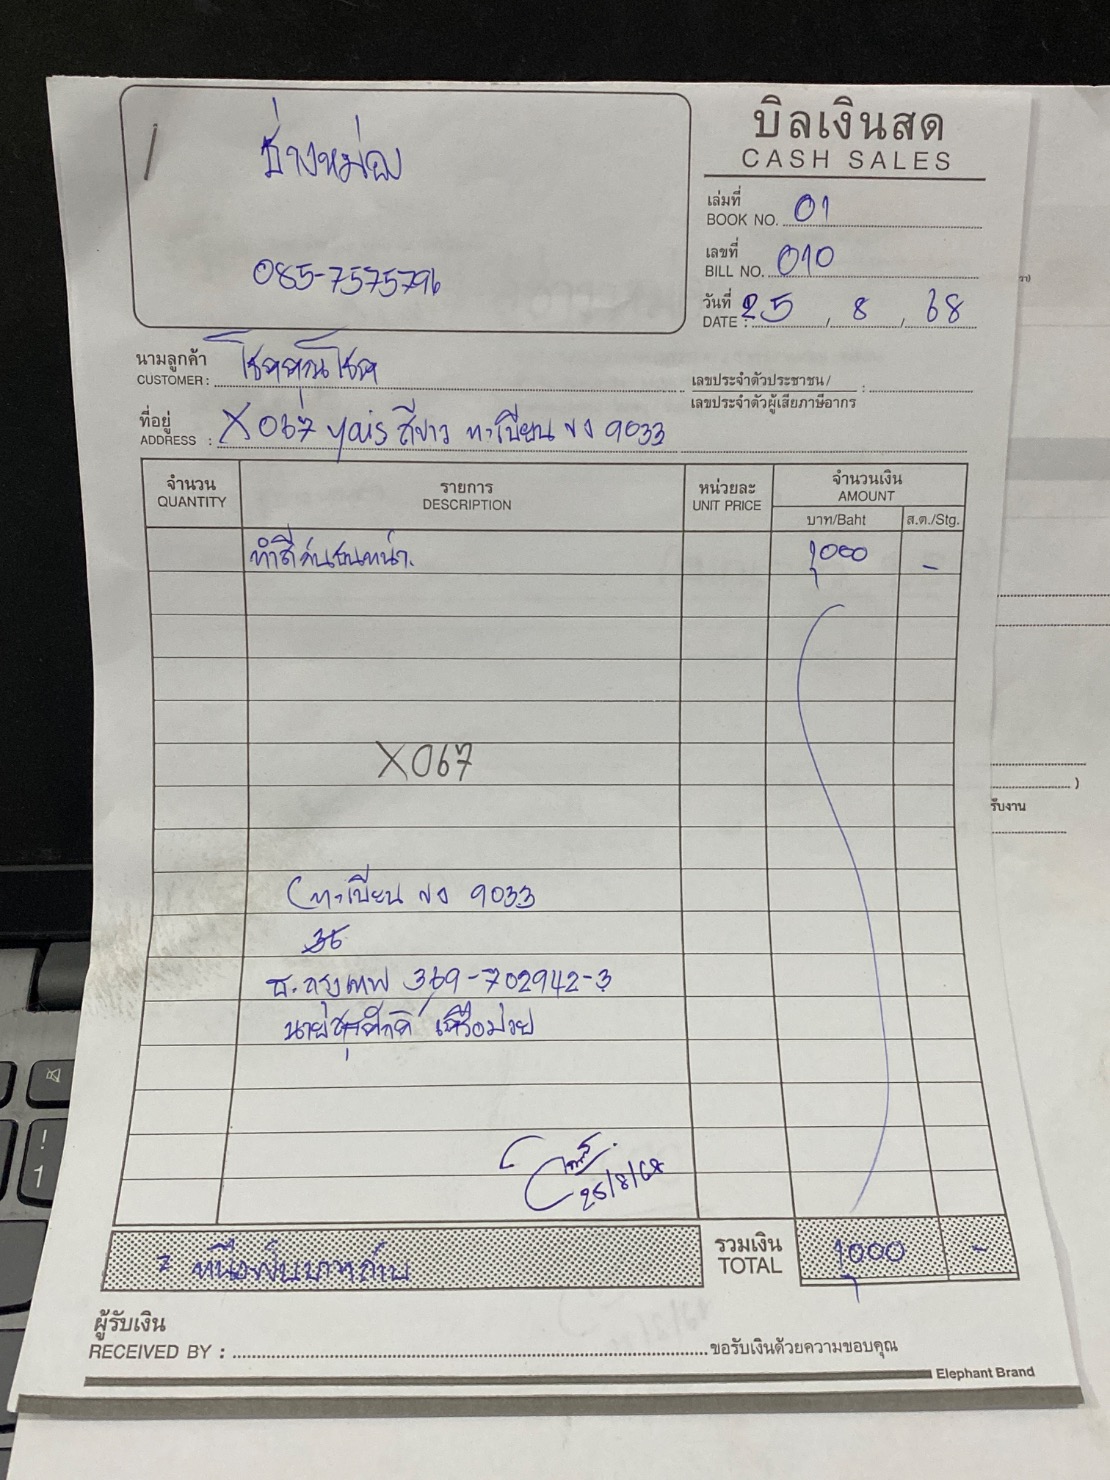 บิลเงินสด
CASH SALES
ช่างหม่อง
085-7575796
เล่มที่
BOOK NO. 01
เลขที่
BILL NO. 010
วันที่
DATE : 25 / 8 / 68
นามลูกค้า
CUSTOMER : โชคคณโชค
เลขประจำตัวประชาชน/
เลขประจำตัวผู้เสียภาษีอากร :
ที่อยู่
ADDRESS : X067 yais สีขาว ทะเบียน ขง 9033
จำนวน
QUANTITY
รายการ
DESCRIPTION
หน่วยละ
UNIT PRICE
จำนวนเงิน
AMOUNT
บาท/Baht ส.ต./Stg.
ทำสีกันชนหน้า. 1,000 -
X067
(ทะเบียน ขง 9033
ธ.กรุงเทพ 369-702942-3
นาย เครือม่วย
25/8/68
= หนึ่งพันบาทถ้วน
รวมเงิน
TOTAL 1,000 -
ผู้รับเงิน
RECEIVED BY : ขอรับเงินด้วยความขอบคุณ
Elephant Brand
รับงาน